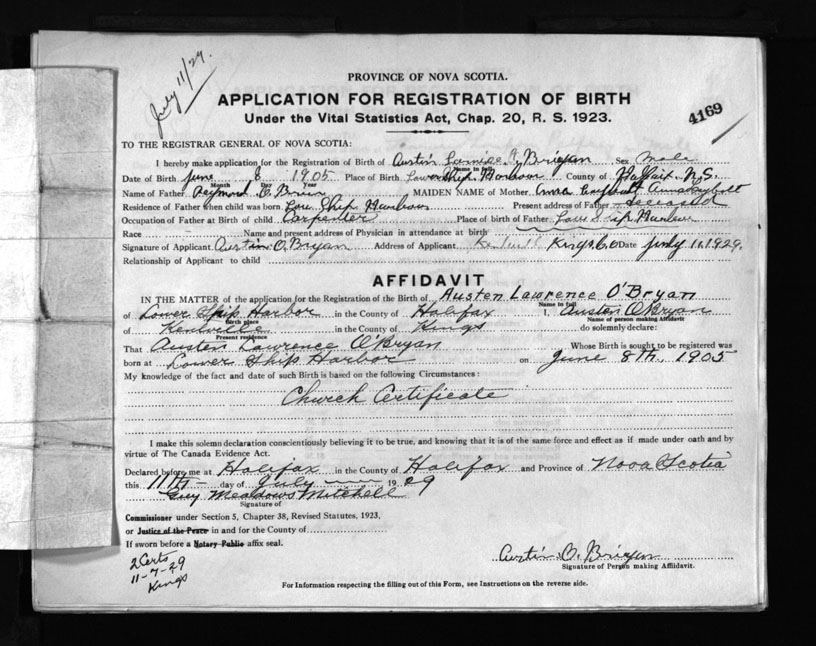 July 11/29.
PROVINCE OF NOVA SCOTIA.
APPLICATION FOR REGISTRATION OF BIRTH
Under the Vital Statistics Act, Chap. 20, R. S. 1923.
4169
TO THE REGISTRAR GENERAL OF NOVA SCOTIA:
I hereby make application for the Registration of Birth of Austin O'Bryan Sex male
Name in full
Date of Birth June 8 1905 Place of Birth Lower Ship Harbour County of Halifax N.S.
Month Day Year
Name of Father O'Brien MAIDEN NAME of Mother Anna
Residence of Father when child was born Low Ship Harbour Present address of Father deceased
Occupation of Father at Birth of child Carpenter Place of birth of Father Low Ship Harbour
Race Name and present address of Physician in attendance at birth
Signature of Applicant Austin O. Bryan Address of Applicant Kentville Kings Co Date July 11. 1929.
Relationship of Applicant to child
AFFIDAVIT
IN THE MATTER of the application for the Registration of the Birth of Austen Lawrence O'Bryan
Name in full
of Lower Ship Harbor in the County of Halifax I, Austen O'Bryan
Birth place Name of person making Affidavit
of Kentville in the County of Kings do solemnly declare:
Present residence
That Austen Lawrence O'Bryan Whose Birth is sought to be registered was
born at Lower Ship Harbor on June 8th, 1905
My knowledge of the fact and date of such Birth is based on the following Circumstances:
Church Certificate
I make this solemn declaration conscientiously believing it to be true, and knowing that it is of the same force and effect as if made under oath and by
virtue of The Canada Evidence Act.
Declared before me at Halifax in the County of Halifax and Province of Nova Scotia
this 11th day of July 1929
Guy Meadows Mitchell
Signature of
Commissioner under Section 5, Chapter 38, Revised Statutes, 1923,
or Justice of the Peace in and for the County of
If sworn before a Notary Public affix seal.
2 Certs
11-7-29
Kings
Austin O. Bryan
Signature of Person making Affidavit.
For Information respecting the filling out of this Form, see Instructions on the reverse side.